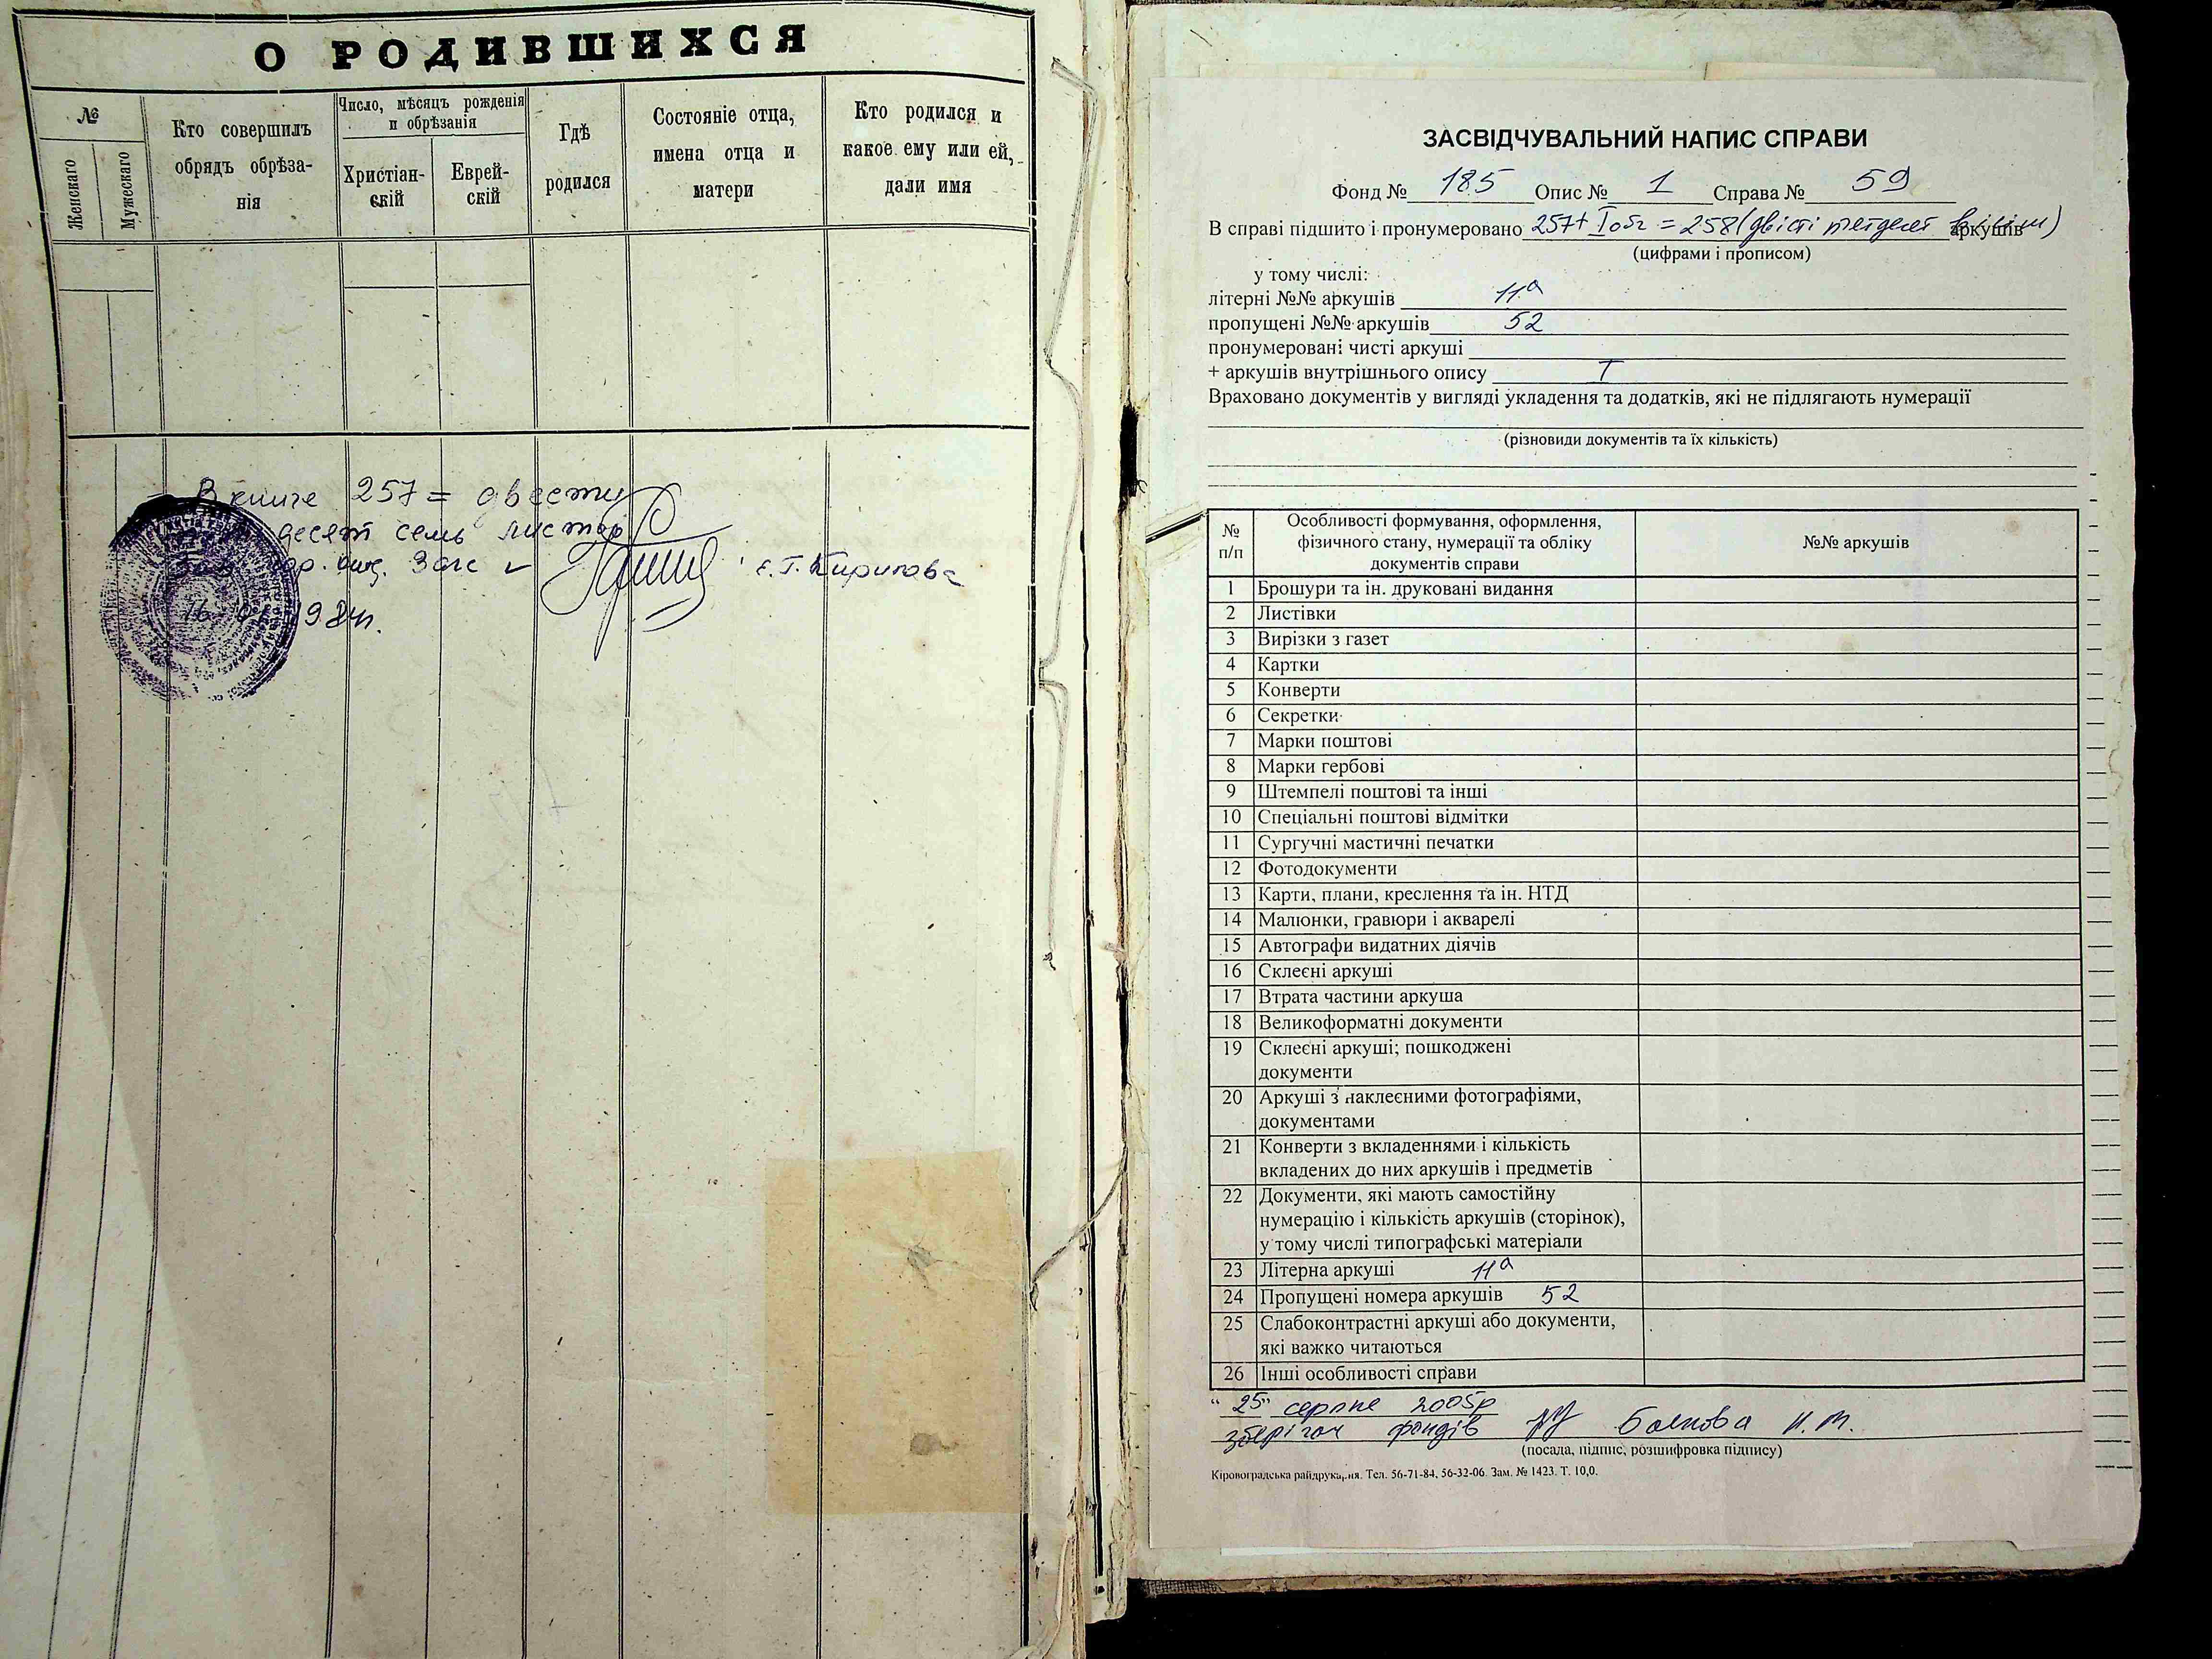 О РОДИВШИХСЯ
№
Женскаго
Мужескаго
Кто совершилъ
обрядъ обрѣза-
нія
Число, мѣсяцъ рожденія
и обрѣзанія
Христіан-
скій
Еврей-
скій
Гдѣ
родился
Состояніе отца,
имена отца и
матери
Кто родился и
какое ему или ей,
дали имя
В книге 257 = двести
десят семь листов
Загс
ЗАСВІДЧУВАЛЬНИЙ НАПИС СПРАВИ
Фонд № 185 Опис № 1 Справа № 59
В справі підшито і пронумеровано 257+ = 258 (двісті вісім) аркушів
(цифрами і прописом)
у тому числі:
літерні №№ аркушів 11а
пропущені №№ аркушів 52
пронумеровані чисті аркуші
+ аркушів внутрішнього опису I
Враховано документів у вигляді укладення та додатків, які не підлягають нумерації
(різновиди документів та їх кількість)
№
п/п
Особливості формування, оформлення,
фізичного стану, нумерації та обліку
документів справи
№№ аркушів
1 Брошури та ін. друковані видання
2 Листівки
3 Вирізки з газет
4 Картки
5 Конверти
6 Секретки
7 Марки поштові
8 Марки гербові
9 Штемпелі поштові та інші
10 Спеціальні поштові відмітки
11 Сургучні мастичні печатки
12 Фотодокументи
13 Карти, плани, креслення та ін. НТД
14 Малюнки, гравюри і акварелі
15 Автографи видатних діячів
16 Склеєні аркуші
17 Втрата частини аркуша
18 Великоформатні документи
19 Склеєні аркуші; пошкоджені
документи
20 Аркуші з наклеєними фотографіями,
документами
21 Конверти з вкладеннями і кількість
вкладених до них аркушів і предметів
22 Документи, які мають самостійну
нумерацію і кількість аркушів (сторінок),
у тому числі типографські матеріали
23 Літерна аркуші 11а
24 Пропущені номера аркушів 52
25 Слабоконтрастні аркуші або документи,
які важко читаються
26 Інші особливості справи
"25" серпне 2005р
зберігач фондів
(посада, підпис, розшифровка підпису)
Кіровоградська райдрукарня. Тел. 56-71-84, 56-32-06. Зам. № 1423. Т. 10,0.